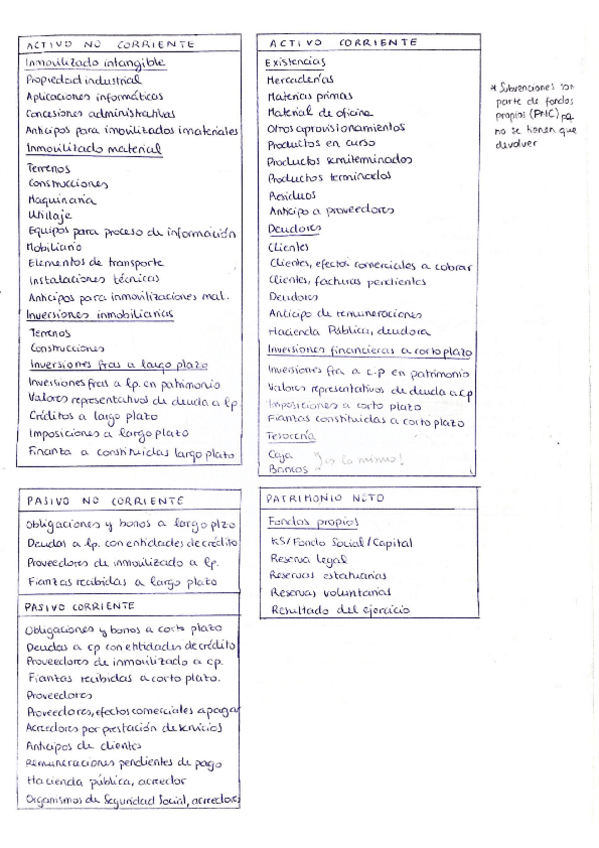 ACTIVO NO CORRIENTE
Inmovilizado intangible
Propiedad industrial
Aplicaciones informáticas
Concesiones administrativas
Anticipos para imovilizados inmateriales
Inmovilizado material
Terrenos
Construcciones
Maquinaria
Utillaje
Equipos para proceso de información
Mobiliario
Elementos de transporte
Instalaciones técnicas
Anticipos para inmovilizaciones mat.
Inversiones inmobiliarias
Terrenos
Construcciones
Inversiones fras a largo plazo
Inversiones fras a lp. en patrimonio
Valores representativos de deuda a lp
Créditos a largo plazo
Imposiciones a largo plazo
Fianza a constituidas largo plazo
ACTIVO CORRIENTE
Existencias
Mercaderías
Materias primas
Material de oficina
Otros aprovisionamientos
Productos en curso
Productos semiterminados
Productos terminados
Residuos
Anticipo a proveedores
Deudores
Clientes
Clientes, efectos comerciales a cobrar
Clientes, facturas pendientes
Deudores
Anticipo de remuneraciones
Hacienda Pública, deudora
Inversiones financieras a corto plazo
Inversiones fra a c.p en patrimonio
Valores representativos de deuda a cp
Imposiciones a corto plazo
Fianzas constituidas a corto plazo
Tesorería
Caja
Bancos
} es lo mismo!
* Subvenciones son
parte de fondos
propios (PNC) pq
no se tienen que
devolver
PASIVO NO CORRIENTE
Obligaciones y bonos a largo plzo
Deudas a lp. con entidades de crédito
Proveedores de inmovilizado a lp.
Fianzas recibidas a largo plazo
PASIVO CORRIENTE
Obligaciones y bonos a corto plazo
Deudas a cp con entidades de crédito
Proveedores de inmovilizado a cp.
Fianzas recibidas a corto plazo.
Proveedores
Proveedores, efectos comerciales a pagar
Acreedores por prestación de servicios
Anticipos de clientes
Remuneraciones pendientes de pago
Hacienda pública, acreedor
Organismos de Seguridad Social, acreedores
PATRIMONIO NETO
Fondos propios
KS/Fondo Social/Capital
Reserva legal
Reservas estatuarias
Reservas voluntarias
Resultado del ejercicio